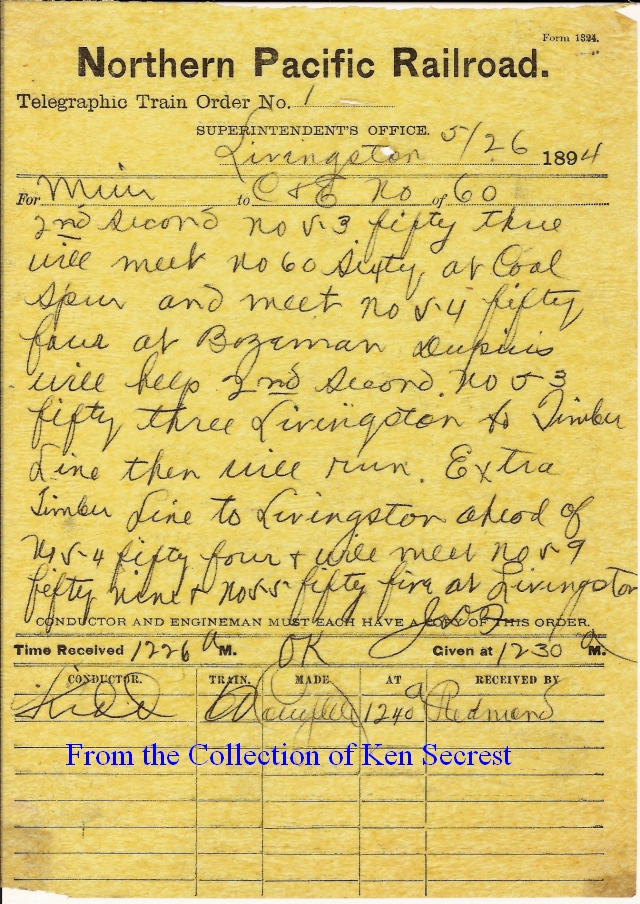 Form 1324.
Northern Pacific Railroad.
Telegraphic Train Order No. 1
SUPERINTENDENT'S OFFICE.
Livingston 5/26 1894
For Muir to C & E No of 60
2nd Second no 53 fifty three
will meet no 60 Sixty at Coal
Spur and meet no 54 fifty
four at Bozeman Dupuis
will help 2nd Second No 53
fifty three Livingston to Timber
Line then will run Extra
Timber Line to Livingston ahead of
No 54 fifty four & will meet no 59
fifty nine & no 55 fifty five at Livingston
CONDUCTOR AND ENGINEMAN MUST EACH HAVE A COPY OF THIS ORDER.
Time Received 1226 A M. OK Given at 1230 a M.
CONDUCTOR. TRAIN. MADE AT RECEIVED BY
Kidd 60 1240 a Redmond
From the Collection of Ken Secrest